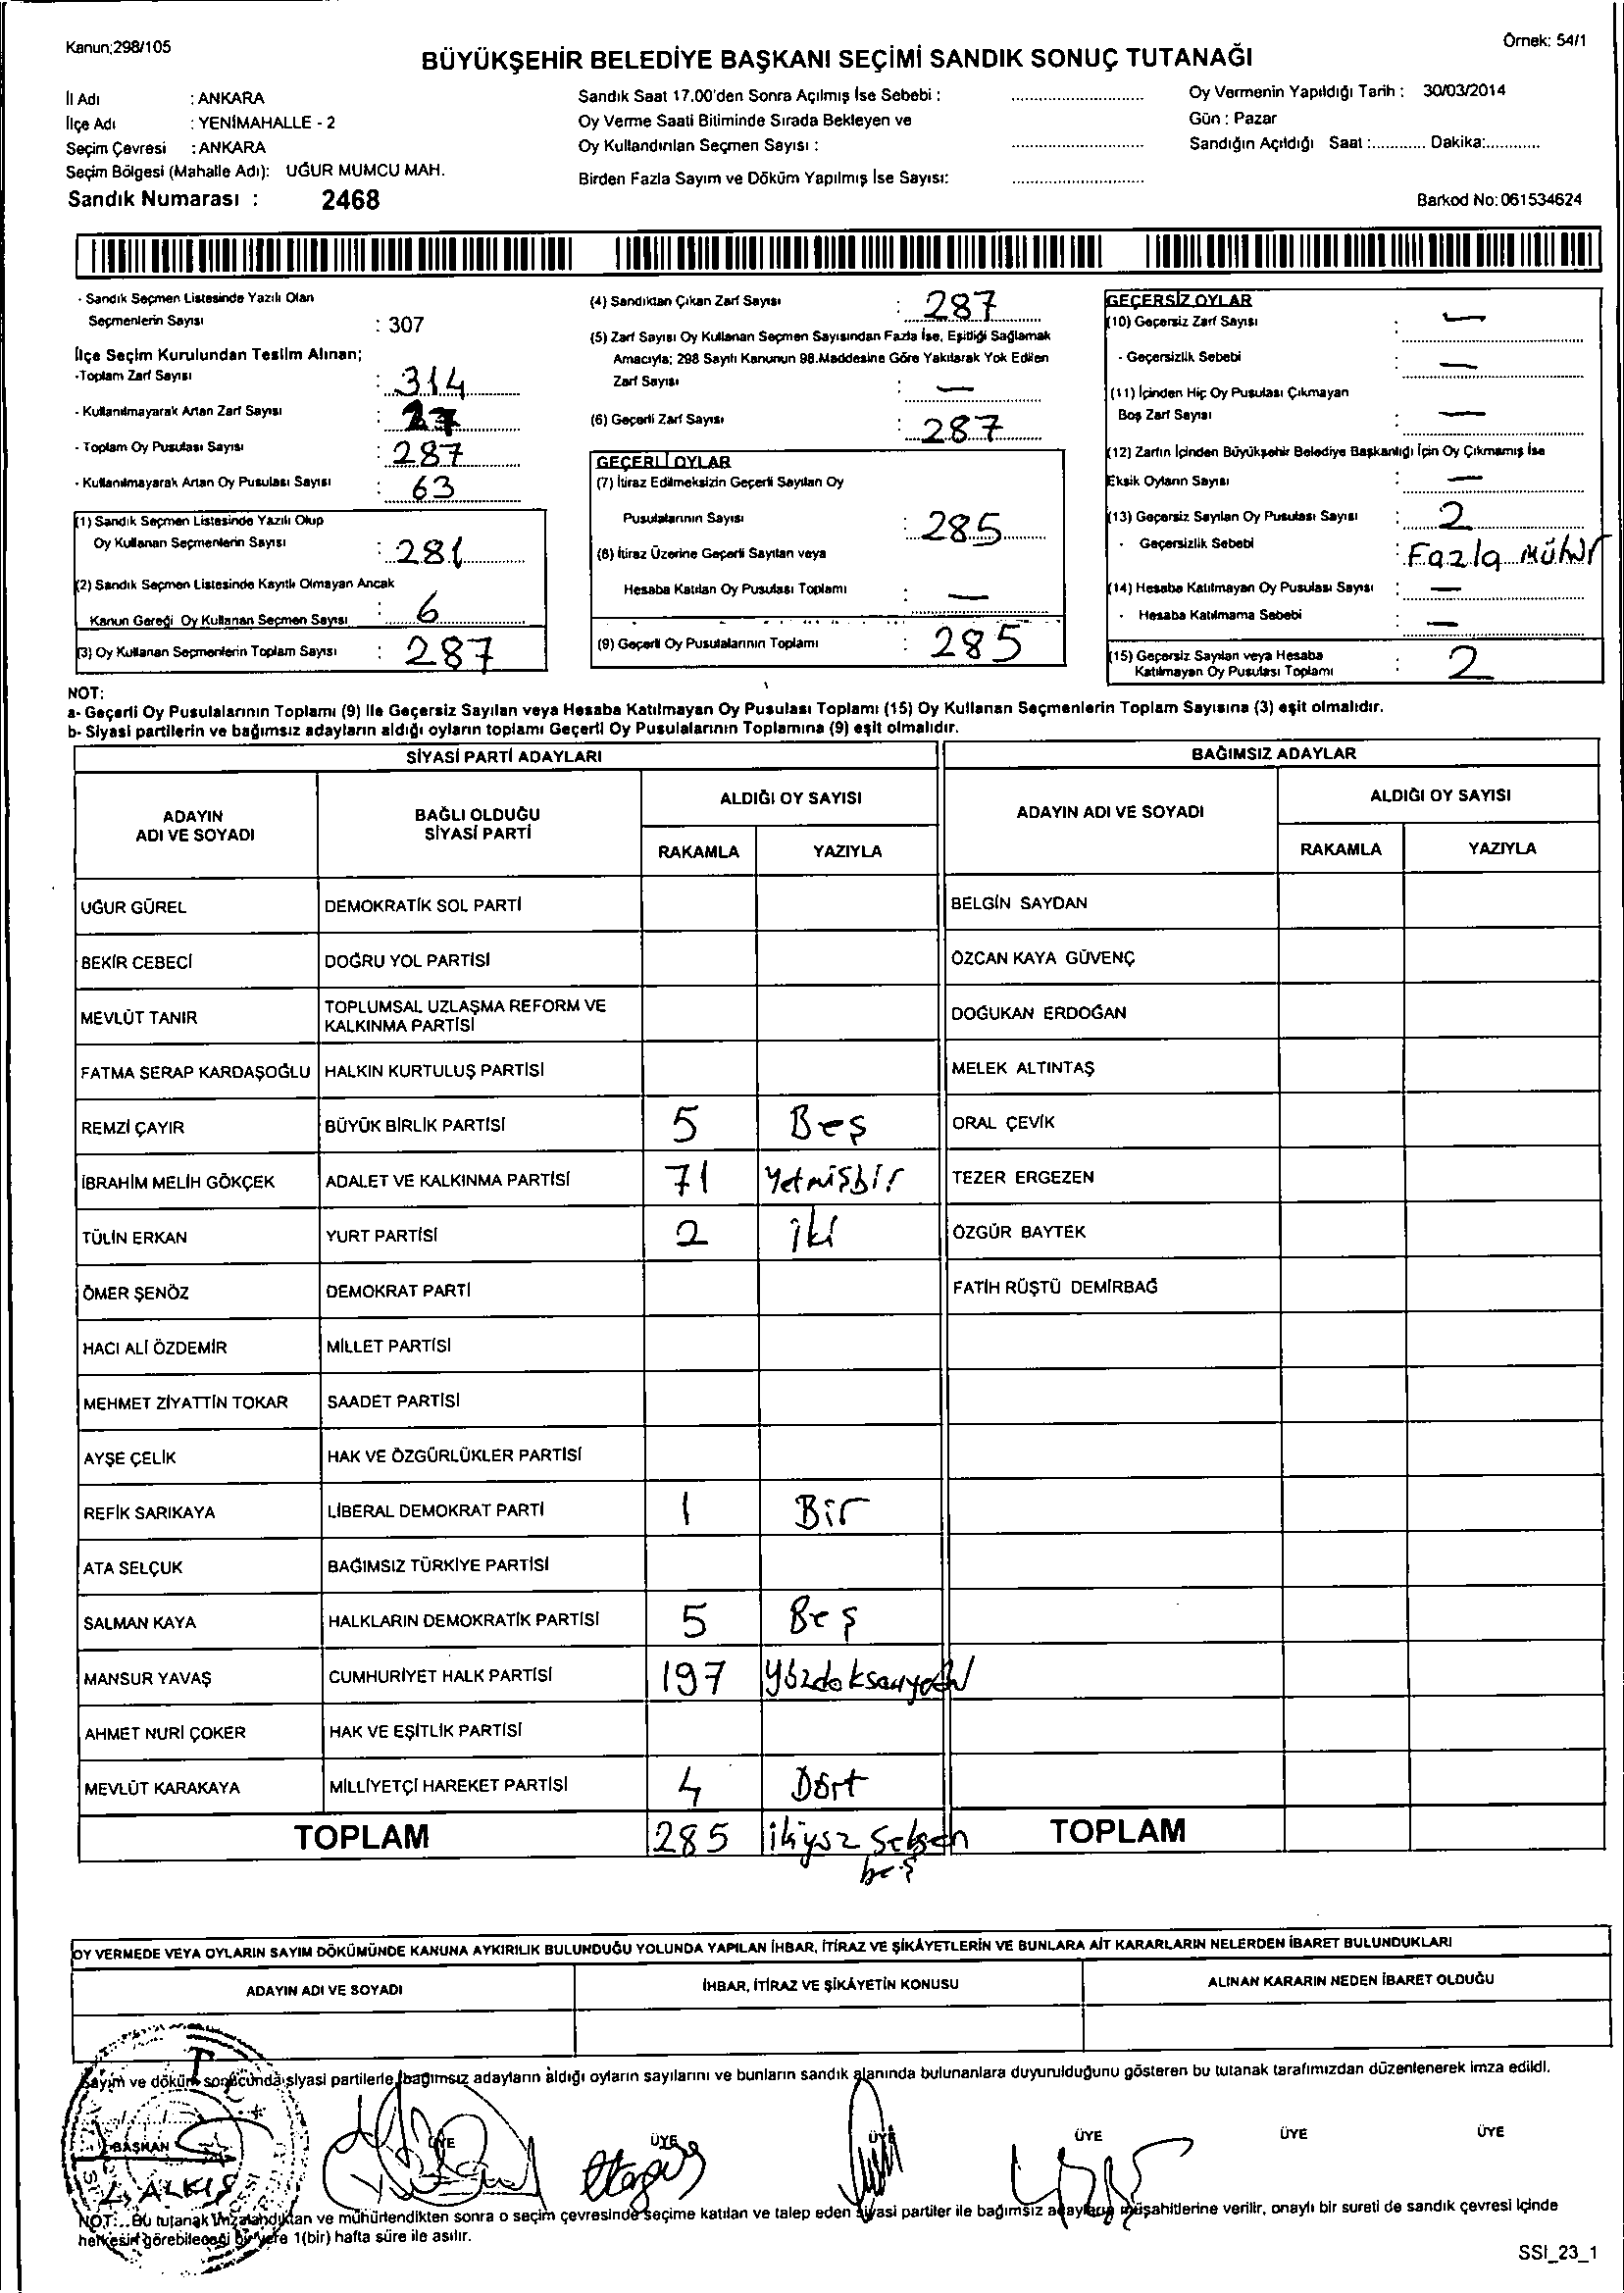 Kanun;298/105
Örnek: 54/1
BÜYÜKŞEHİR BELEDİYE BAŞKANI SEÇİMİ SANDIK SONUÇ TUTANAĞI
İl Adı : ANKARA
İlçe Adı : YENİMAHALLE - 2
Seçim Çevresi : ANKARA
Seçim Bölgesi (Mahalle Adı): UĞUR MUMCU MAH.
Sandık Numarası : 2468
Sandık Saat 17.00'den Sonra Açılmış İse Sebebi :
Oy Verme Saati Bitiminde Sırada Bekleyen ve
Oy Kullandırılan Seçmen Sayısı :
Birden Fazla Sayım ve Döküm Yapılmış İse Sayısı:
Oy Vermenin Yapıldığı Tarih : 30/03/2014
Gün : Pazar
Sandığın Açıldığı Saat :............ Dakika:............
Barkod No:061534624
- Sandık Seçmen Listesinde Yazılı Olan
Seçmenlerin Sayısı : 307
İlçe Seçim Kurulundan Teslim Alınan;
-Toplam Zarf Sayısı : 314
- Kullanılmayarak Artan Zarf Sayısı : 27
- Toplam Oy Pusulası Sayısı : 287
- Kullanılmayarak Artan Oy Pusulası Sayısı : 63
(1) Sandık Seçmen Listesinde Yazılı Olup
Oy Kullanan Seçmenlerin Sayısı : 281
(2) Sandık Seçmen Listesinde Kayıtlı Olmayan Ancak
Kanun Gereği Oy Kullanan Seçmen Sayısı : 6
(3) Oy Kullanan Seçmenlerin Toplam Sayısı : 287
(4) Sandıktan Çıkan Zarf Sayısı : 287
(5) Zarf Sayısı Oy Kullanan Seçmen Sayısından Fazla İse, Eşitliği Sağlamak
Amacıyla; 298 Sayılı Kanunun 98.Maddesine Göre Yakılarak Yok Edilen
Zarf Sayısı : —
(6) Geçerli Zarf Sayısı : 287
GEÇERLİ OYLAR
(7) İtiraz Edilmeksizin Geçerli Sayılan Oy
Pusulalarının Sayısı : 285
(8) İtiraz Üzerine Geçerli Sayılan veya
Hesaba Katılan Oy Pusulası Toplamı : —
(9) Geçerli Oy Pusulalarının Toplamı : 285
GEÇERSİZ OYLAR
(10) Geçersiz Zarf Sayısı : —
- Geçersizlik Sebebi : —
(11) İçinden Hiç Oy Pusulası Çıkmayan
Boş Zarf Sayısı : —
(12) Zarfın İçinden Büyükşehir Belediye Başkanlığı İçin Oy Çıkmamış İse
Eksik Oyların Sayısı : —
(13) Geçersiz Sayılan Oy Pusulası Sayısı : 2
- Geçersizlik Sebebi : Fazla Mühür
(14) Hesaba Katılmayan Oy Pusulası Sayısı : —
- Hesaba Katılmama Sebebi : —
(15) Geçersiz Sayılan veya Hesaba
Katılmayan Oy Pusulası Toplamı : 2
NOT:
a- Geçerli Oy Pusulalarının Toplamı (9) ile Geçersiz Sayılan veya Hesaba Katılmayan Oy Pusulası Toplamı (15) Oy Kullanan Seçmenlerin Toplam Sayısına (3) eşit olmalıdır.
b- Siyasi partilerin ve bağımsız adayların aldığı oyların toplamı Geçerli Oy Pusulalarının Toplamına (9) eşit olmalıdır.
SİYASİ PARTİ ADAYLARI BAĞIMSIZ ADAYLAR
ADAYIN
ADI VE SOYADI
BAĞLI OLDUĞU
SİYASİ PARTİ
ALDIĞI OY SAYISI
RAKAMLA YAZIYLA
ADAYIN ADI VE SOYADI
ALDIĞI OY SAYISI
RAKAMLA YAZIYLA
UĞUR GÜREL DEMOKRATİK SOL PARTİ BELGİN SAYDAN
BEKİR CEBECİ DOĞRU YOL PARTİSİ ÖZCAN KAYA GÜVENÇ
MEVLÜT TANIR TOPLUMSAL UZLAŞMA REFORM VE
KALKINMA PARTİSİ DOĞUKAN ERDOĞAN
FATMA SERAP KARDAŞOĞLU HALKIN KURTULUŞ PARTİSİ MELEK ALTINTAŞ
REMZİ ÇAYIR BÜYÜK BİRLİK PARTİSİ 5 Beş ORAL ÇEVİK
İBRAHİM MELİH GÖKÇEK ADALET VE KALKINMA PARTİSİ 71 Yetmişbir TEZER ERGEZEN
TÜLİN ERKAN YURT PARTİSİ 2 iki ÖZGÜR BAYTEK
ÖMER ŞENÖZ DEMOKRAT PARTİ FATİH RÜŞTÜ DEMİRBAĞ
HACI ALİ ÖZDEMİR MİLLET PARTİSİ
MEHMET ZİYATTİN TOKAR SAADET PARTİSİ
AYŞE ÇELİK HAK VE ÖZGÜRLÜKLER PARTİSİ
REFİK SARIKAYA LİBERAL DEMOKRAT PARTİ 1 Bir
ATA SELÇUK BAĞIMSIZ TÜRKİYE PARTİSİ
SALMAN KAYA HALKLARIN DEMOKRATİK PARTİSİ 5 Beş
MANSUR YAVAŞ CUMHURİYET HALK PARTİSİ 197 Yüzdoksanyedi
AHMET NURİ ÇOKER HAK VE EŞİTLİK PARTİSİ
MEVLÜT KARAKAYA MİLLİYETÇİ HAREKET PARTİSİ 4 Dört
TOPLAM 285 ikiyüz seksen TOPLAM
beş
OY VERMEDE VEYA OYLARIN SAYIM DÖKÜMÜNDE KANUNA AYKIRILIK BULUNDUĞU YOLUNDA YAPILAN İHBAR, İTİRAZ VE ŞİKÂYETLERİN VE BUNLARA AİT KARARLARIN NELERDEN İBARET BULUNDUKLARI
ADAYIN ADI VE SOYADI İHBAR, İTİRAZ VE ŞİKÂYETİN KONUSU ALINAN KARARIN NEDEN İBARET OLDUĞU
Sayım ve döküm sonucunda siyasi partilerle bağımsız adayların aldığı oyların sayılarını ve bunların sandık alanında bulunanlara duyurulduğunu gösteren bu tutanak tarafımızdan düzenlenerek imza edildi.
BAŞKAN ÜYE ÜYE ÜYE ÜYE ÜYE ÜYE
ALKIŞ
NOT:.. Bu tutanak imzalandıktan ve mühürlendikten sonra o seçim çevresinde seçime katılan ve talep eden siyasi partiler ile bağımsız adayların müşahitlerine verilir, onaylı bir sureti de sandık çevresi içinde
herkesin görebileceği bir yere 1(bir) hafta süre ile asılır.
SSI_23_1